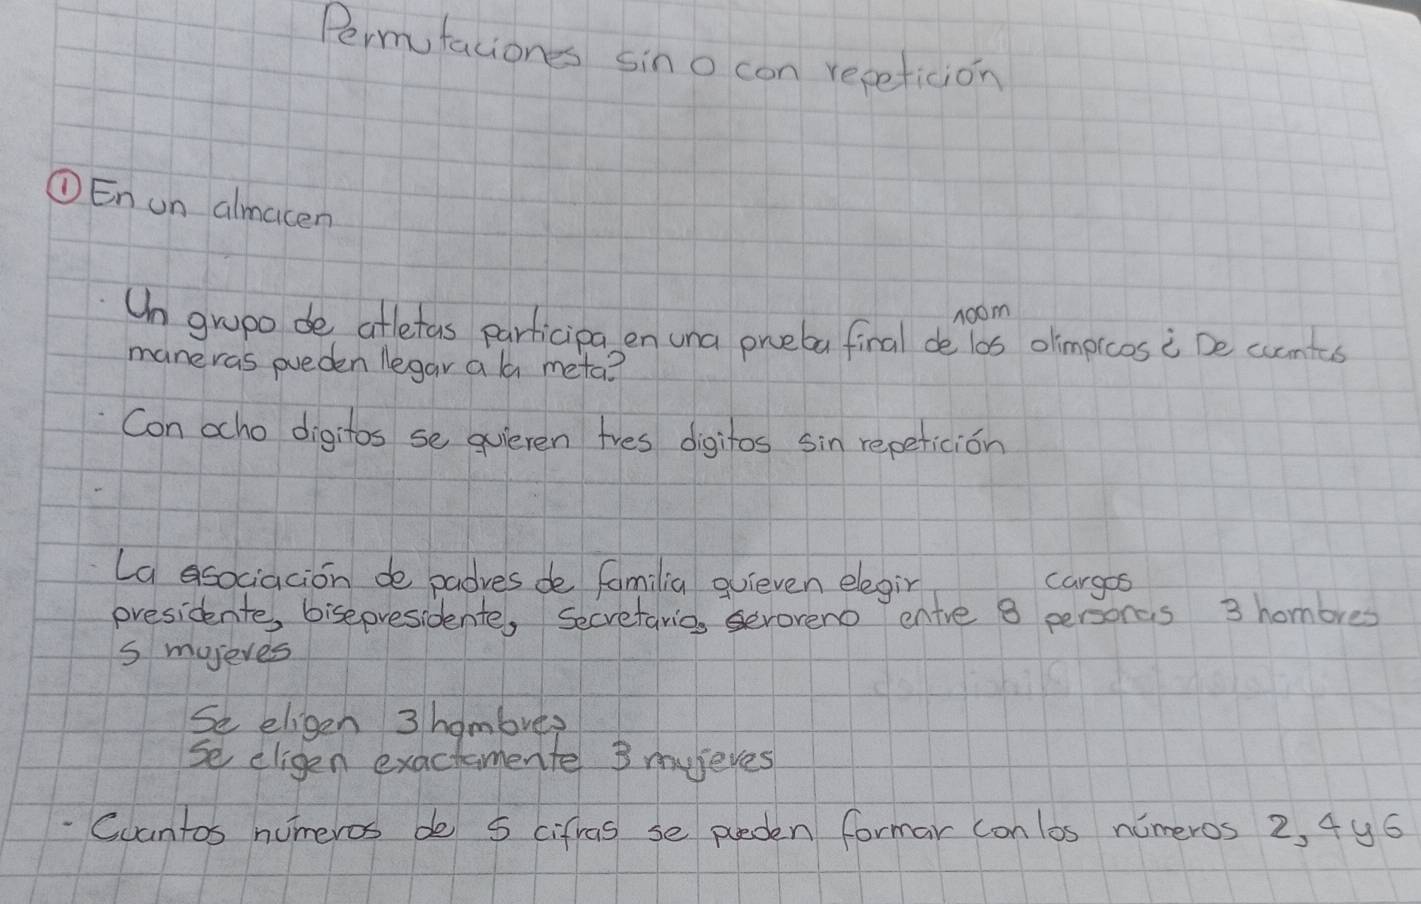 Permutaciones sin o con repetición
① En un almacen
· Un grupo de atletas participa en una prueba final de los 100m olimpicos ¿ De cuantas
maneras pueden llegar a la meta?
· Con ocho digitos se quieren tres digitos sin repetición
-
· La asociación de padres de familia quieren elegir cargos
presidente, bisepresidente, Secretario, entre 8 personas 3 hombres
5 mujeres
Se eligen 3 hombres
Se eligen exactamente 3 mujeres
- Cuantos números de 5 cifras se pueden formar con los números 2, 4 y 6